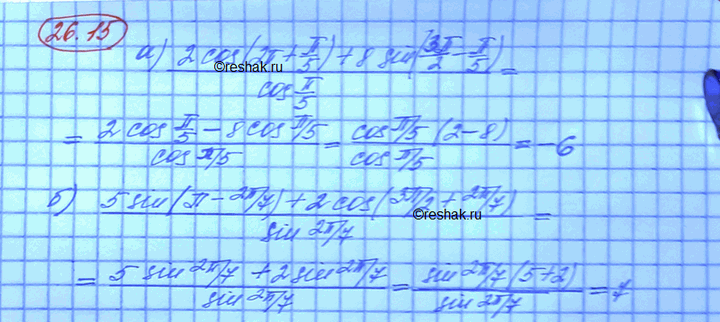 26.15
а) (2 cos(2π + π/5) + 8 sin(3π/2 − π/5)) / (cos π/5) =
©reshak.ru
= (2 cos π/5 − 8 cos π/5) / (cos π/5) = (cos π/5 (2−8)) / (cos π/5) = −6
б) (5 sin(π − 2π/7) + 2 cos(3π/2 + 2π/7)) / (sin 2π/7) =
©reshak.ru
= (5 sin 2π/7 + 2 sin 2π/7) / (sin 2π/7) = (sin 2π/7 (5+2)) / (sin 2π/7) = 7